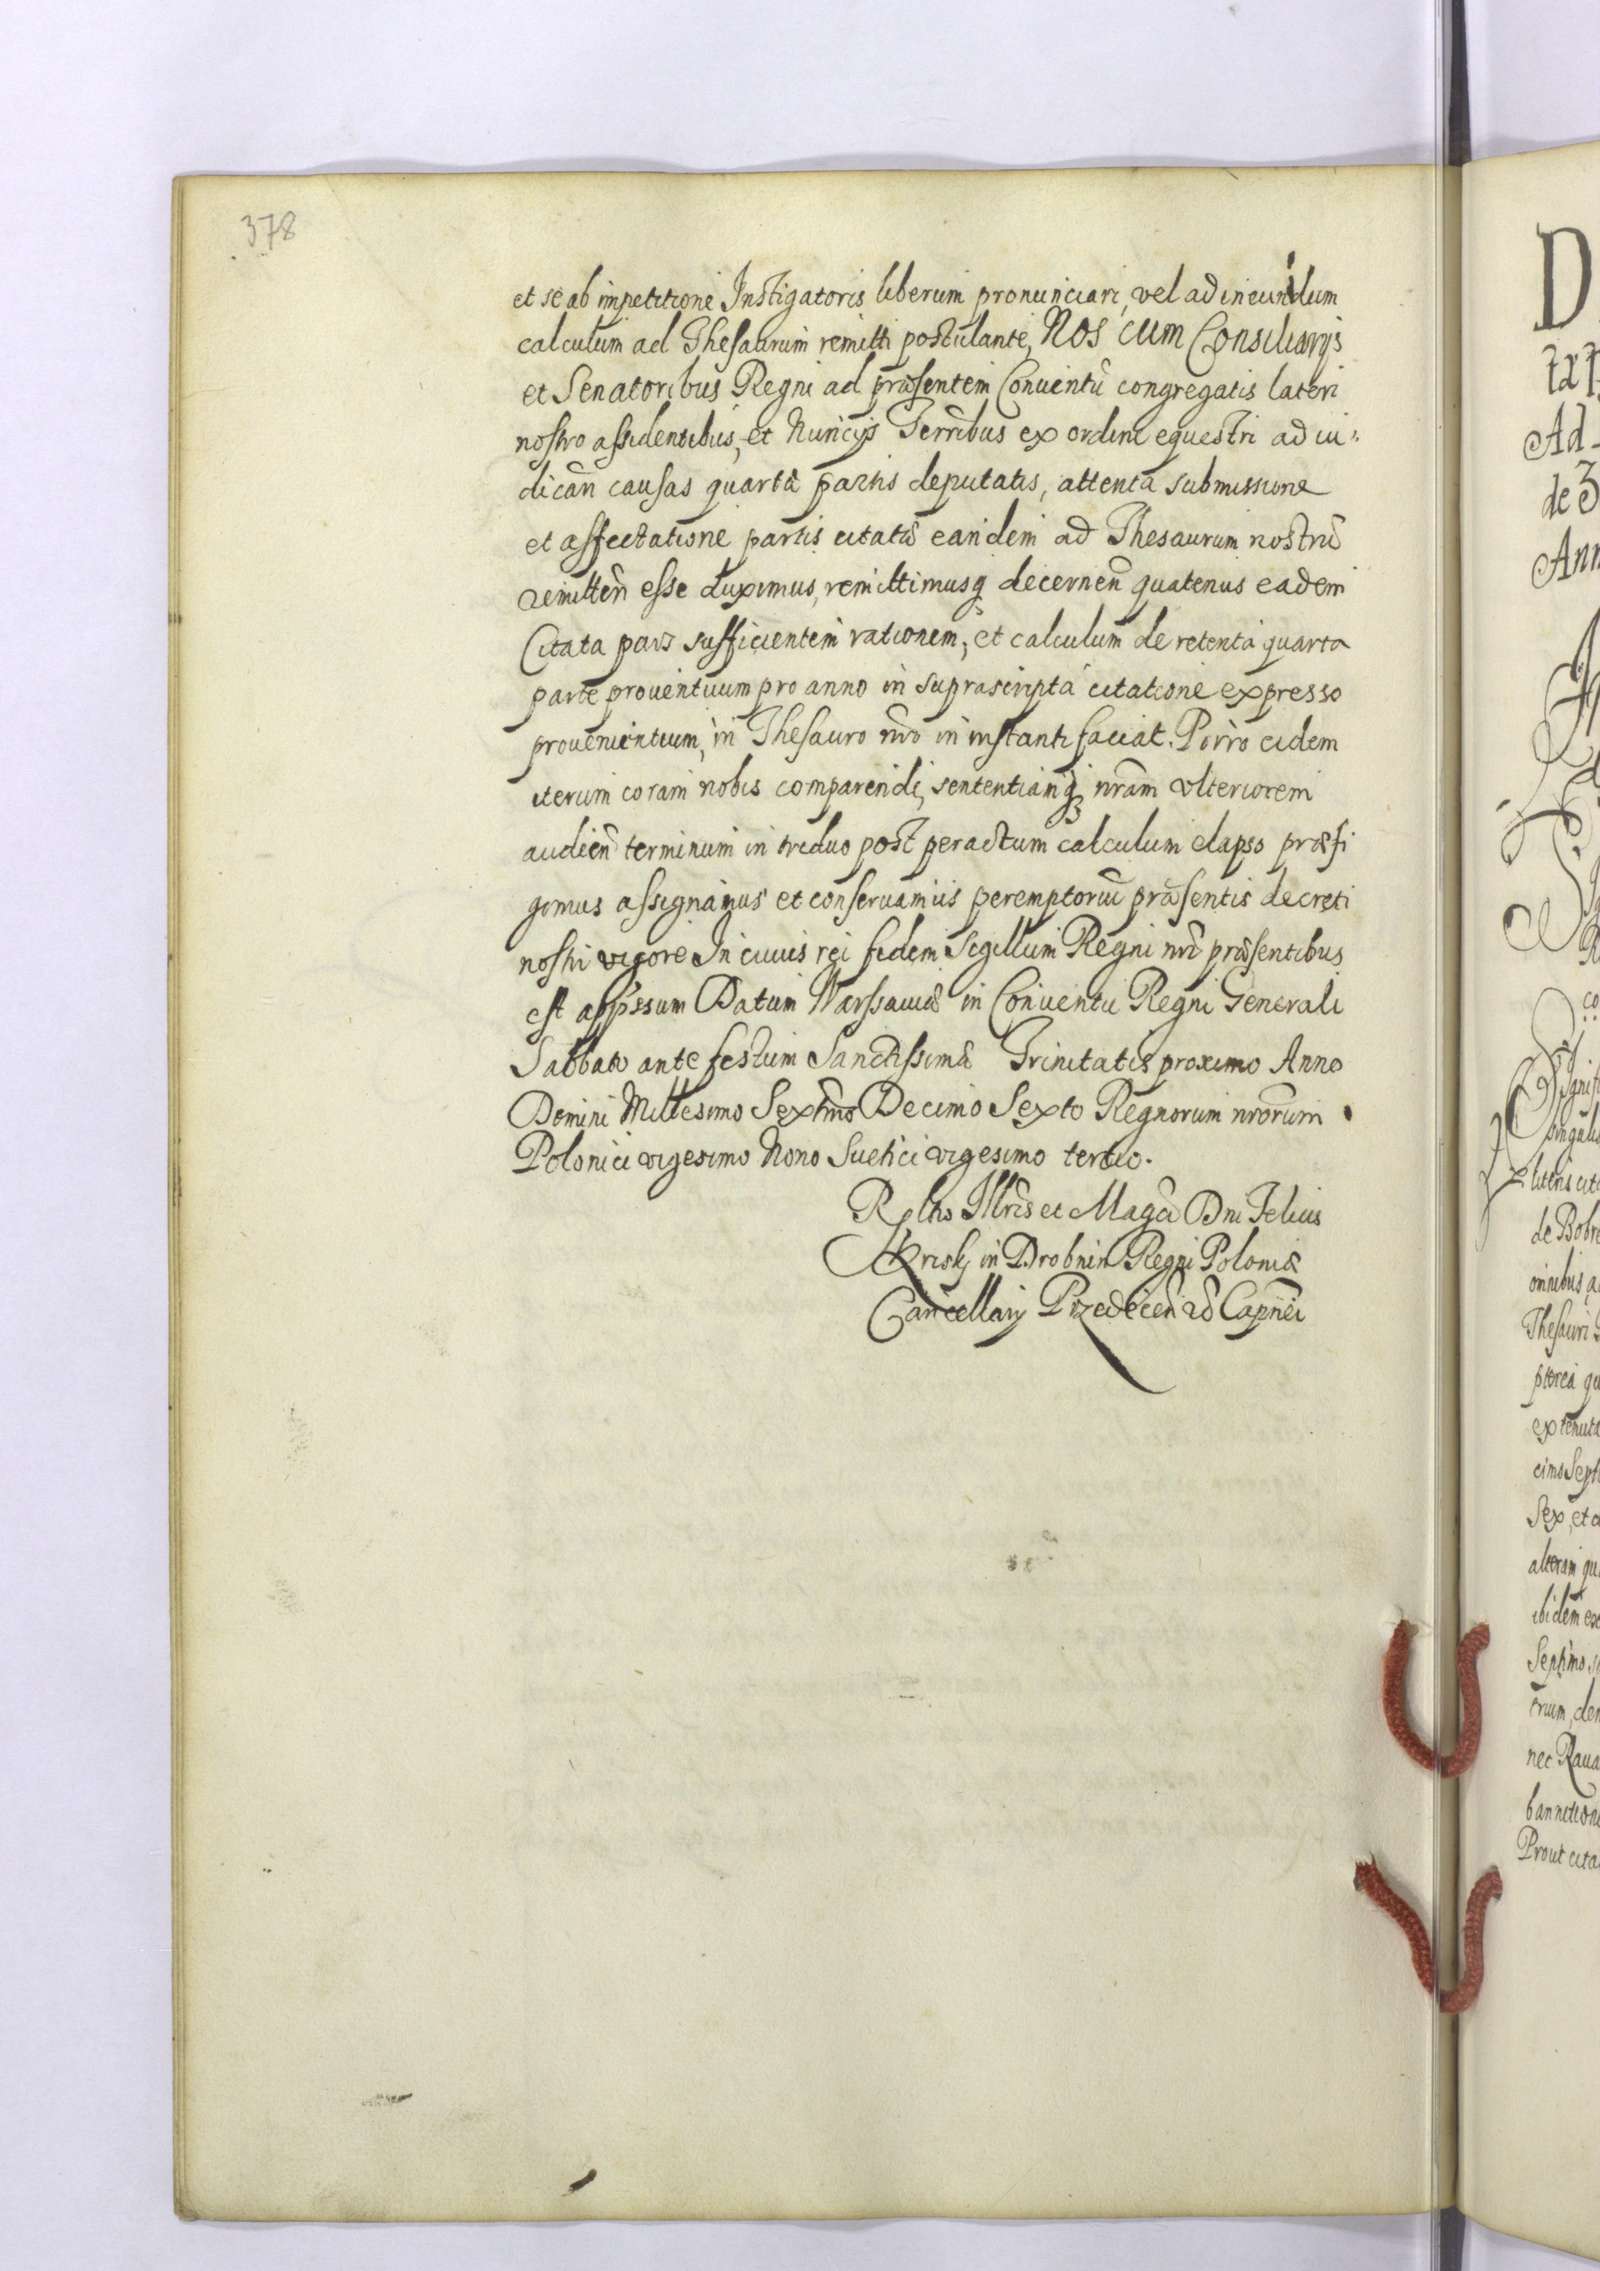 378
et se ab impetitione Instigatoris liberum pronunciari, vel ad ineundum
calculum ad Thesaurum remitti postulante, Nos cum Consiliarijs
et Senatoribus Regni ad præsentem Conuentũ congregatis lateri
nostro assidentibus, et Nuncijs Terrıbus ex ordine equestri ad iu-
dicañ causas quartæ partis deputatis, attenta submissione
et affectatione partis citatæ eandem ad Thesaurum nostrũ
remitteñ esse duximus, remittimusq decerneñ quatenus eadem
Citata pars sufficientem rationem, et calculum de retenta quarta
parte prouentuum pro anno in suprascripta citatione expresso
prouenientium, in Thesauro nro in instanti faciat. Porro eidem
iterum coram nobis comparendi, sententiamq nram vlteriorem
audieñ terminum in triduo post peractum calculum elapso præfi
gimus assignamus et conseruamus peremptoriũ præsentis decreti
nostri vigore In cuius rei fidem Sigillum Regni nri præsentibus
est appssum Datum Warssauiæ in Conuentu Regni Generali
Sabbato ante festum Sanctissimæ Trinitatis proximo Anno
Domini Millesimo Sextmo Decimo Sexto Regnorum nrorum
Polonici vigesimo Nono Suetici vigesimo tertio.
Rltio Illris et Magci Dni Felicis
Krisky in Drobnin Regni Poloniæ
Cancellarij Capnei
D
Ad
de 3
Ann
co
singuli
literis cita
de Bobr
omnibus a
Thesauri
pterea qu
ex tenuta
cimo Sept
Sex, et a
alteram qu
ibidem ex
Septimo s
nec Raua
bannitione
Prout cita